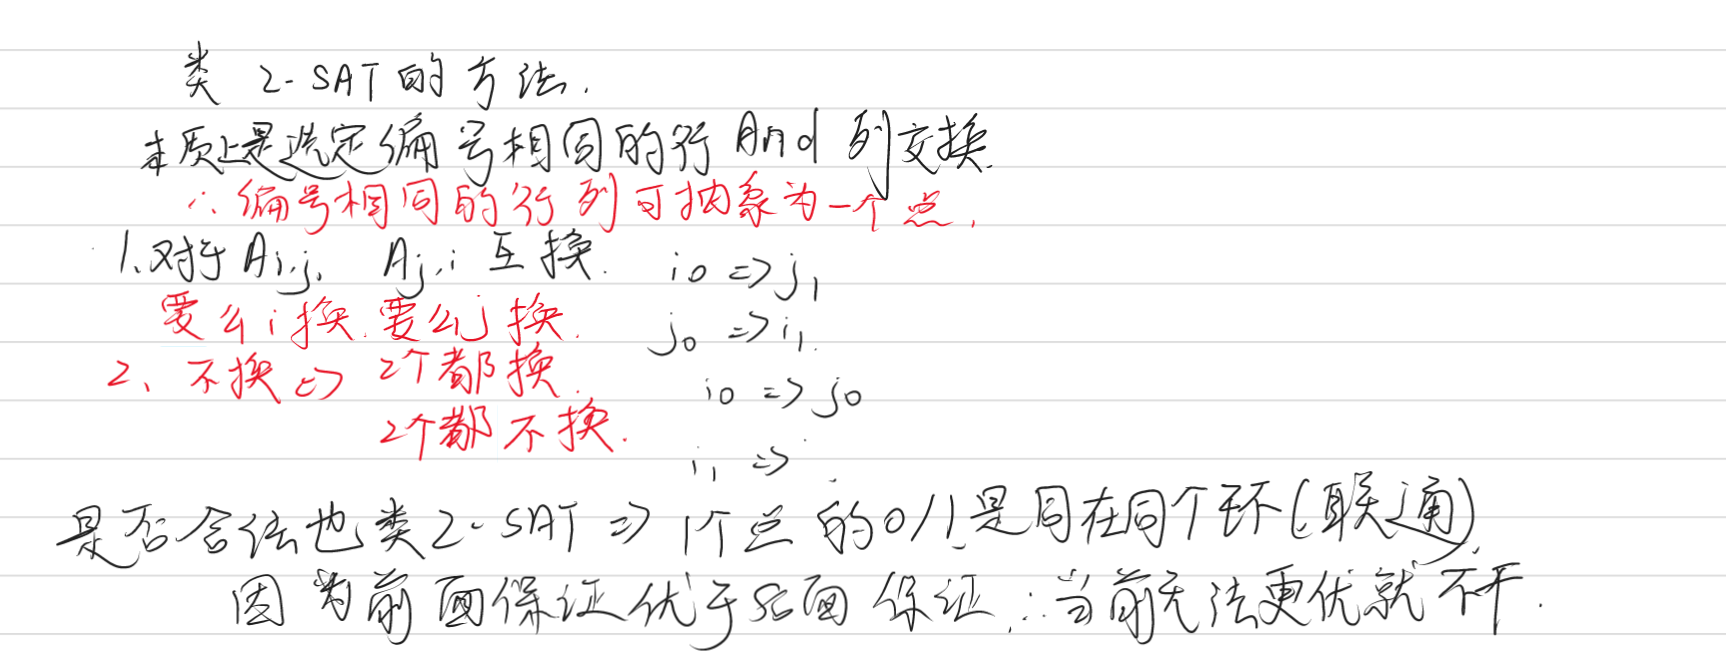 类 2-SAT的方法.
本质上是选定编号相同的行And列交换.
∴编号相同的行列可抽象为一个点.
1.对于Ai,j, Aj,i互换. i0 => j1
要么i换.要么j换. j0 => i1.
2、不换 => 2个都换. i0 => j0
2个都不换. i1 =>
是否合法也类2-SAT => 1个点的0/1是同在同个环(联通).
因为前面保证优于后面保证.∴当前无法更优就不干.